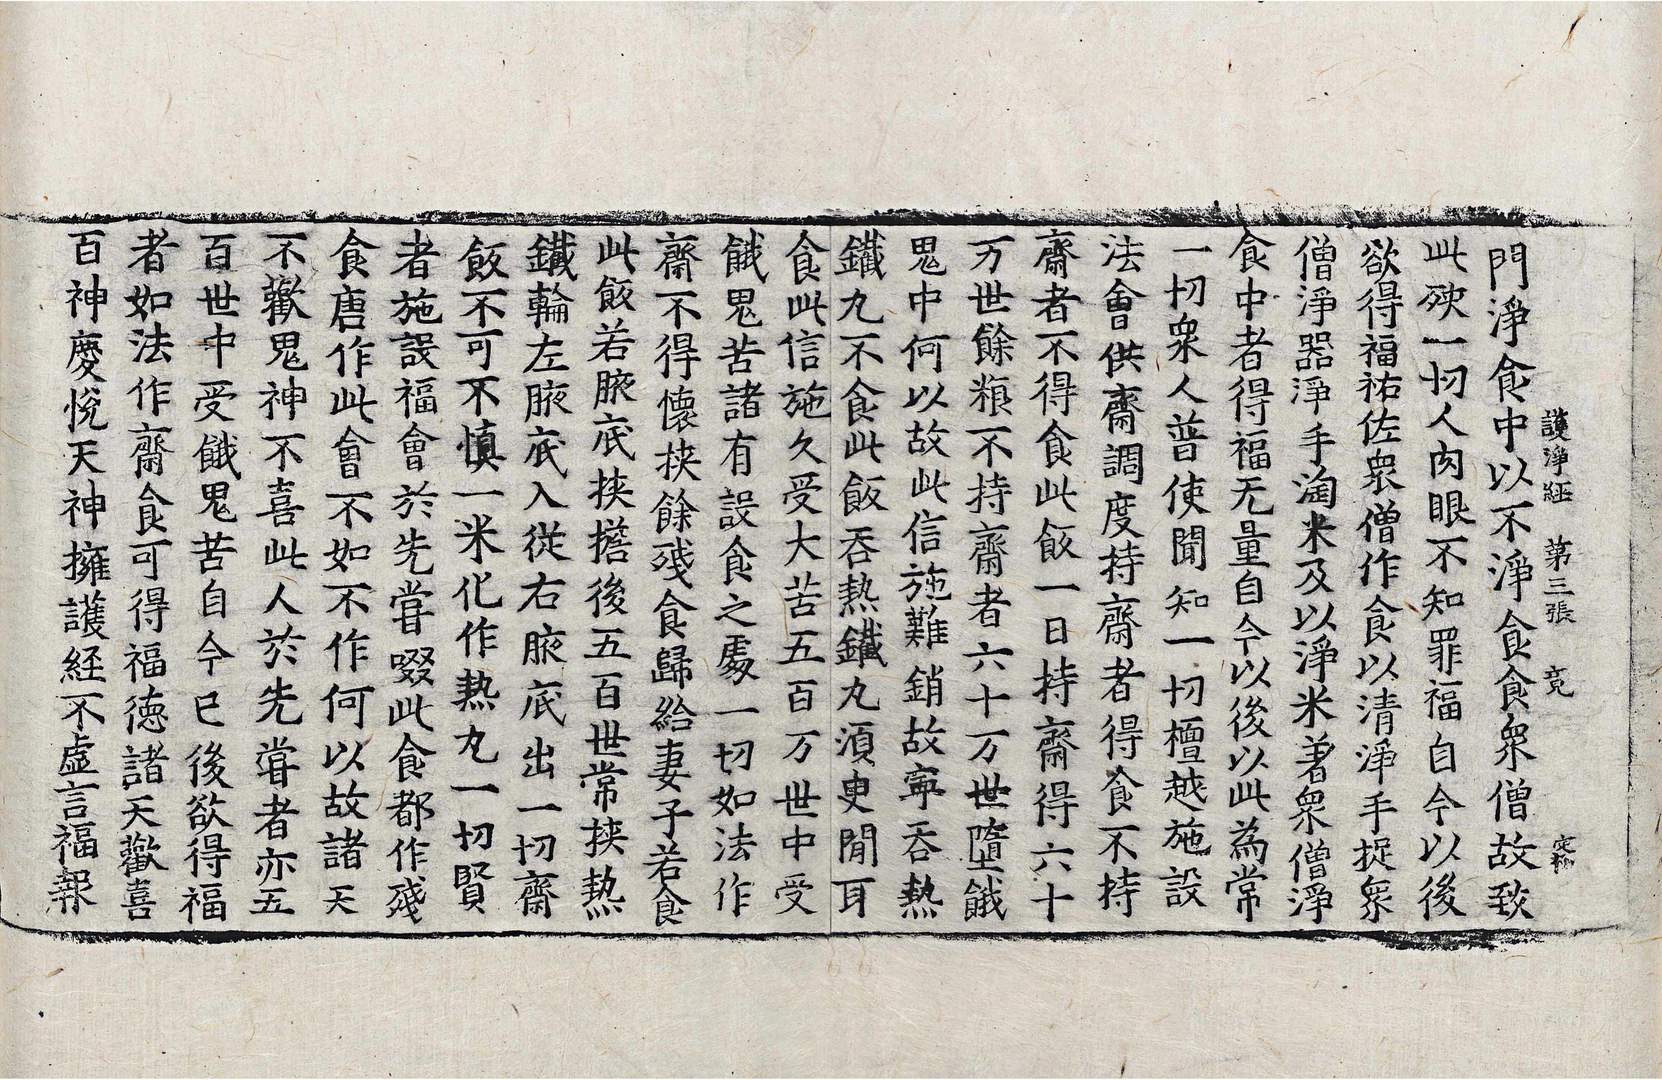 護淨經 第三張 竟
門淨食中以不淨食食衆僧故致
此殃一切人肉眼不知罪福自今以後
欲得福祐佐衆僧作食以清淨手捉衆
僧淨器淨手淘米及以淨米著衆僧淨
食中者得福无量自今以後以此為常
一切衆人普使聞知一切檀越施設
法會供齋調度持齋者得食不持
齋者不得食此飯一日持齋得六十
万世餘粮不持齋者六十万世墮餓
鬼中何以故此信施難銷故寧吞熱
鐵丸不食此飯吞熱鐵丸須臾閒耳
食此信施久受大苦五百万世中受
餓鬼苦諸有設食之處一切如法作
齋不得懷挾餘殘食歸給妻子若食
此飯若腋底挾擔後五百世常挾熱
鐵輪左腋底入從右腋底出一切齋
飯不可不慎一米化作熱丸一切賢
者施設福會於先嘗啜此食都作殘
食唐作此會不如不作何以故諸天
不歡鬼神不喜此人於先嘗者亦五
百世中受餓鬼苦自今已後欲得福
者如法作齋食可得福德諸天歡喜
百神慶悅天神擁護經不虛言福報